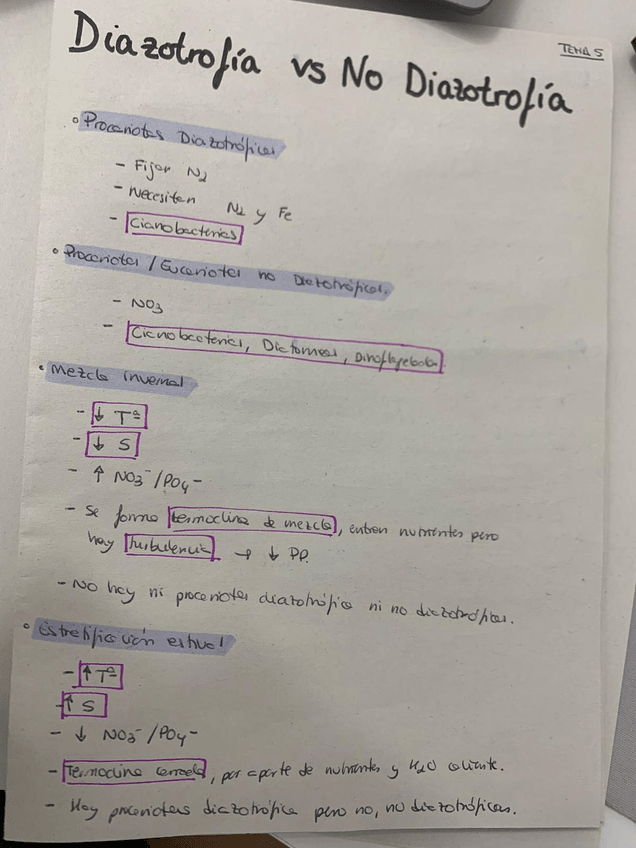 TEMA 5
Diazotrofía vs No Diazotrofía
° Procariotas Diazotróficas
- Fijan N2
- Necesitan N2 y Fe
- Cianobacterias
° Procariotas / Eucariotas no Diazotróficas.
- NO3
- Cianobacterias, Diatomeas, Dinoflagelados
° Mezcla invernal
- ↓ Tª
- ↓ S
- ↑ NO3⁻/PO4⁻
- Se forma termoclina de mezcla, entran nutrientes pero
hay turbulencia → ↓ PP.
- No hay ni procariotas diazotrófica ni no diazotróficas.
° Estratificación estival
- ↑ Tª
- ↑ S
- ↓ NO3⁻/PO4⁻
- Termoclina cerrada, por aporte de nutrientes y H2O caliente.
- Hay procariotas diazotrófica pero no, no diazotróficas.